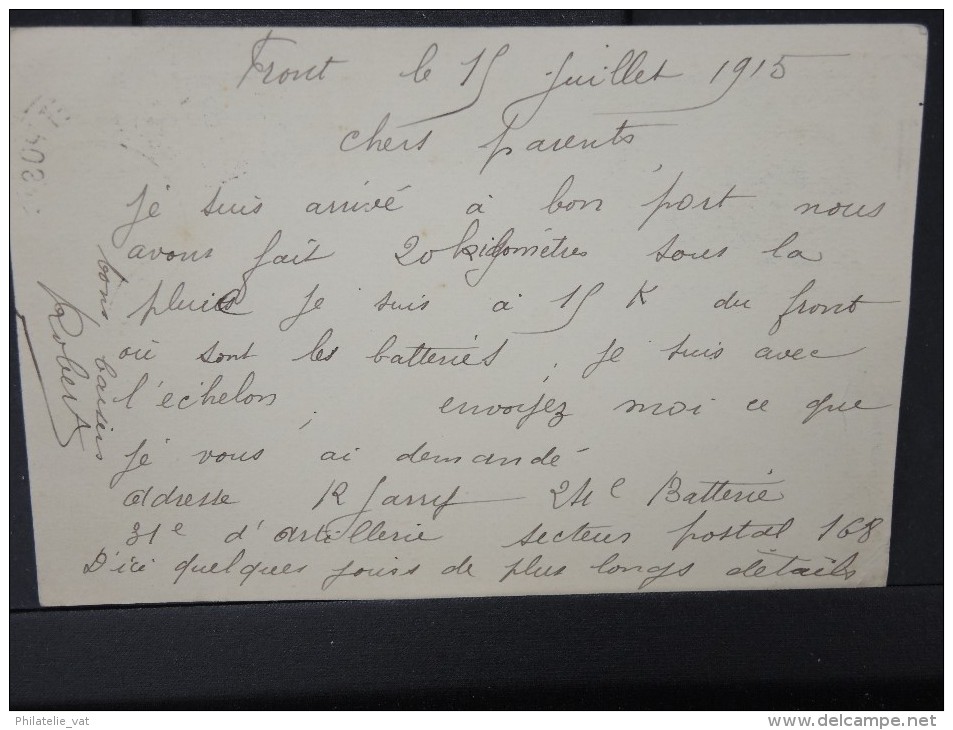 Front le 15 Juillet 1915
chers parents,
je suis arrivé à bon port nous
avons fait 20 kilométres sous la
pluie je suis à 15 K du front
où sont les batteries, je suis avec
l'échelon, envoyez moi ce que
je vous ai demandé
adresse R 24e Batterie
31e d'artillerie secteur postal 168
D'ici quelques jours de plus longs détails
bons baisers
Robert
Philatelie_vat
www.delcampe.net